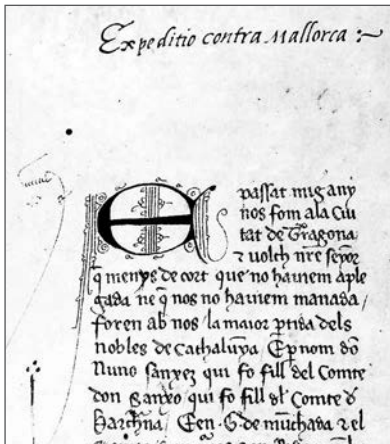 Expeditio contra Mallorca :~
E passat mig any
nos fom ala Ciu
tat de Tarragona
⁊ volch nre senyor
q̄ menys de cort que no hauiem aple
gada ne q̄ nos no hauiem manada/
foren ab nos /la maior ptida dels
nobles de Cathalunya / Ep nom dō
Nuno sanxez qui fo fill del Comte
don Sanxo qui fo fill dl' Comte d'
Barchna/ Een .G. de munchada ⁊ el